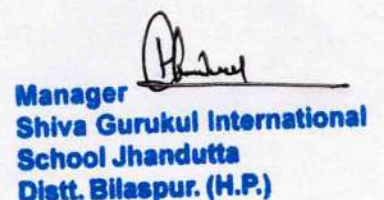 Manager
Shiva Gurukul International
School Jhandutta
Distt. Bilaspur. (H.P.)